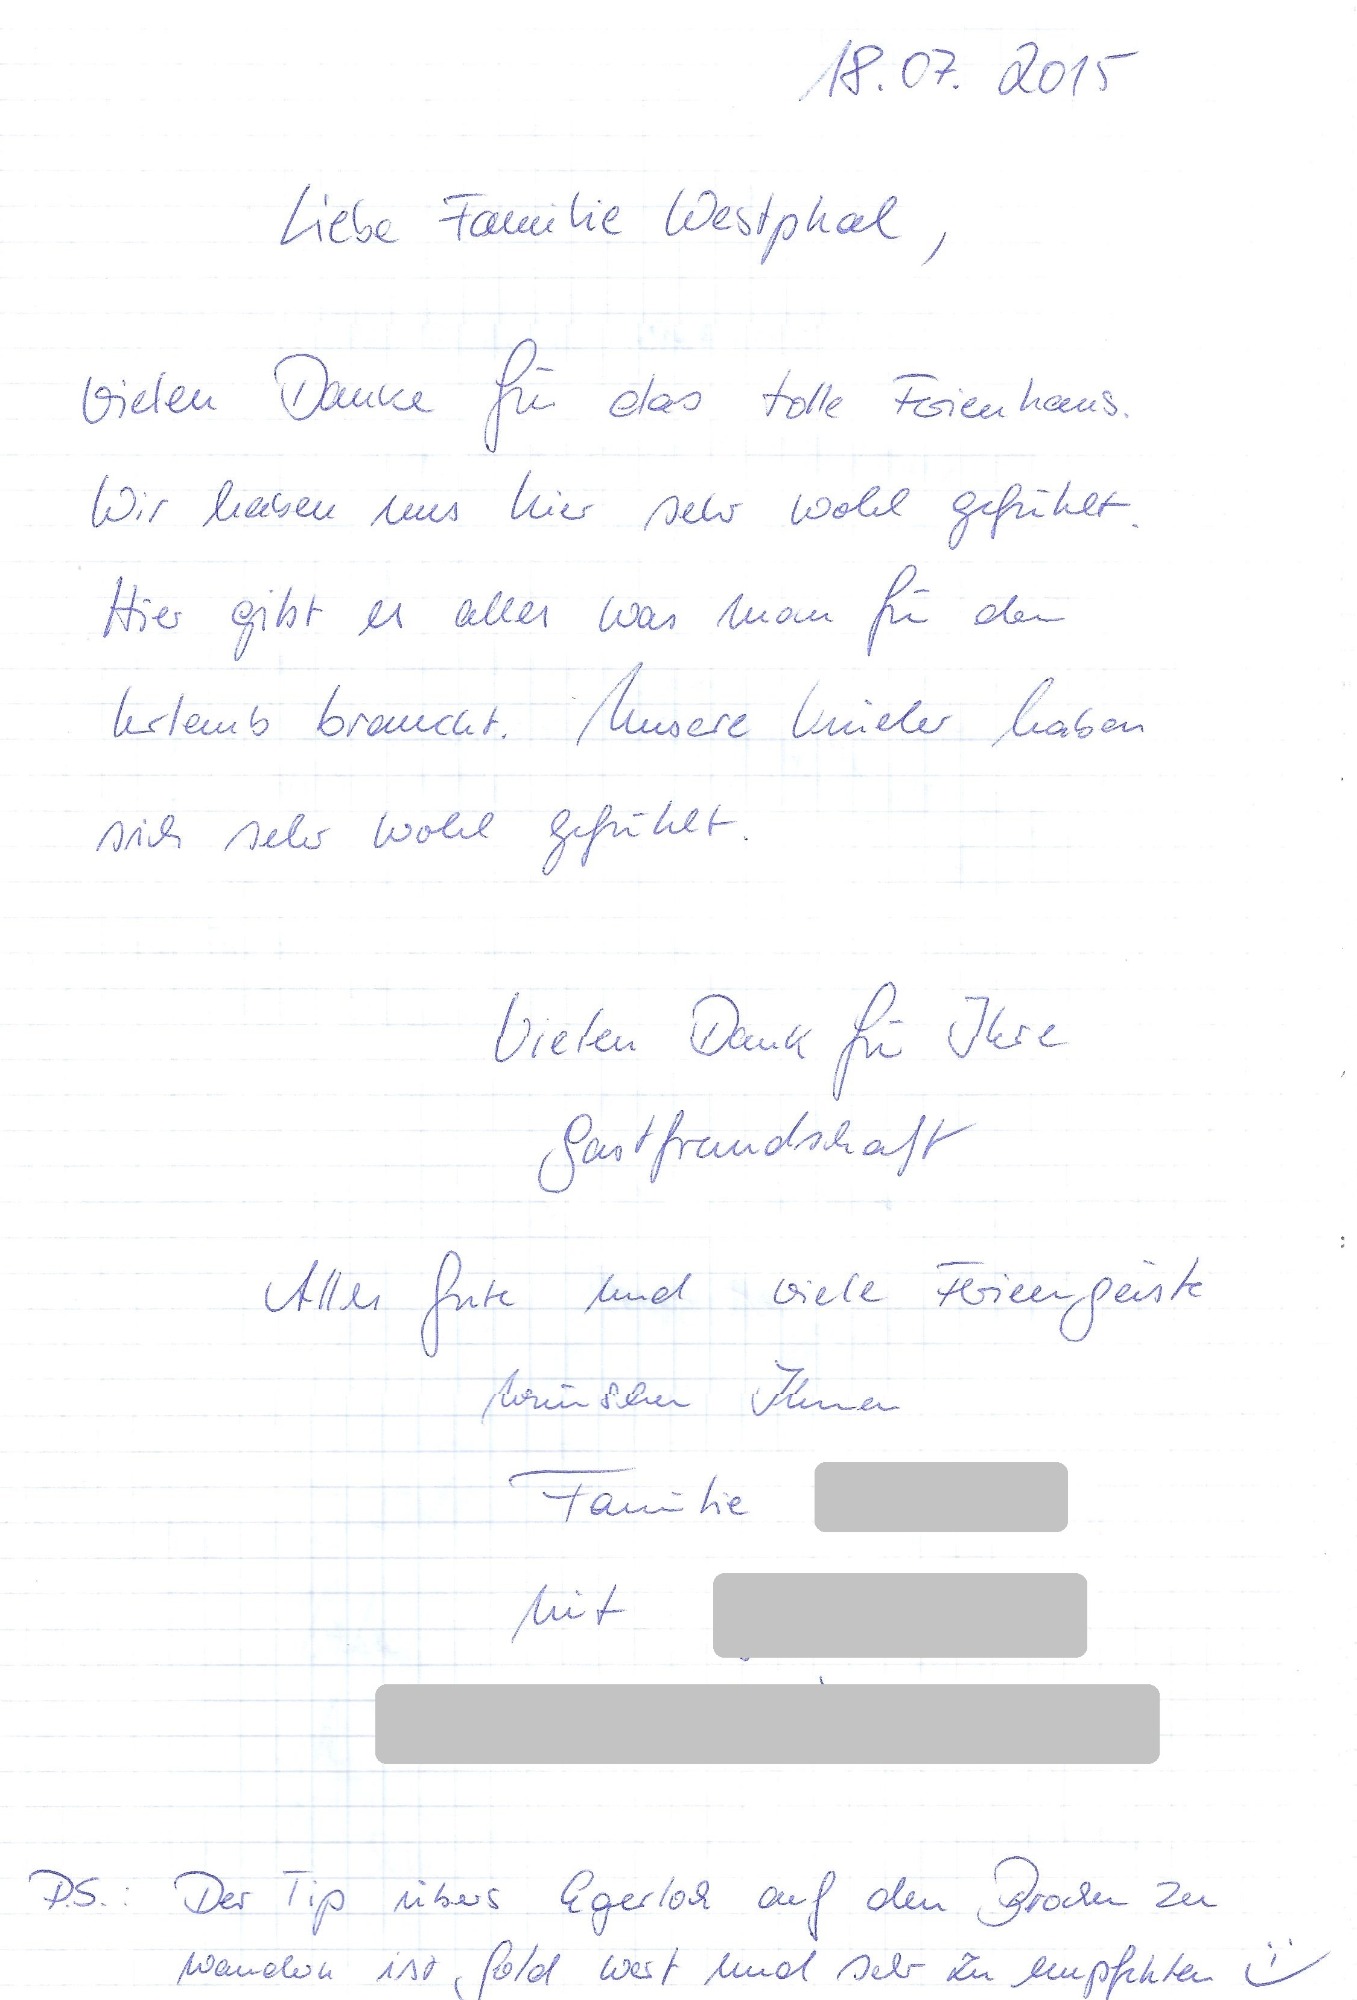 18.07.2015
Liebe Familie Westphal,
vielen Danke für das tolle Ferienhaus.
Wir haben uns hier sehr wohl gefühlt.
Hier gibt es alles was man für den
Urlaub braucht. Unsere Kinder haben
sich sehr wohl gefühlt.
Vielen Dank für Ihre
Gastfreundschaft
Alles Gute und viele Feriengäste
wünschen Ihnen
Familie
mit
P.S.: Der Tip übers Egerloch auf den Brocken zu
wandern ist Gold wert und sehr zu empfehlen